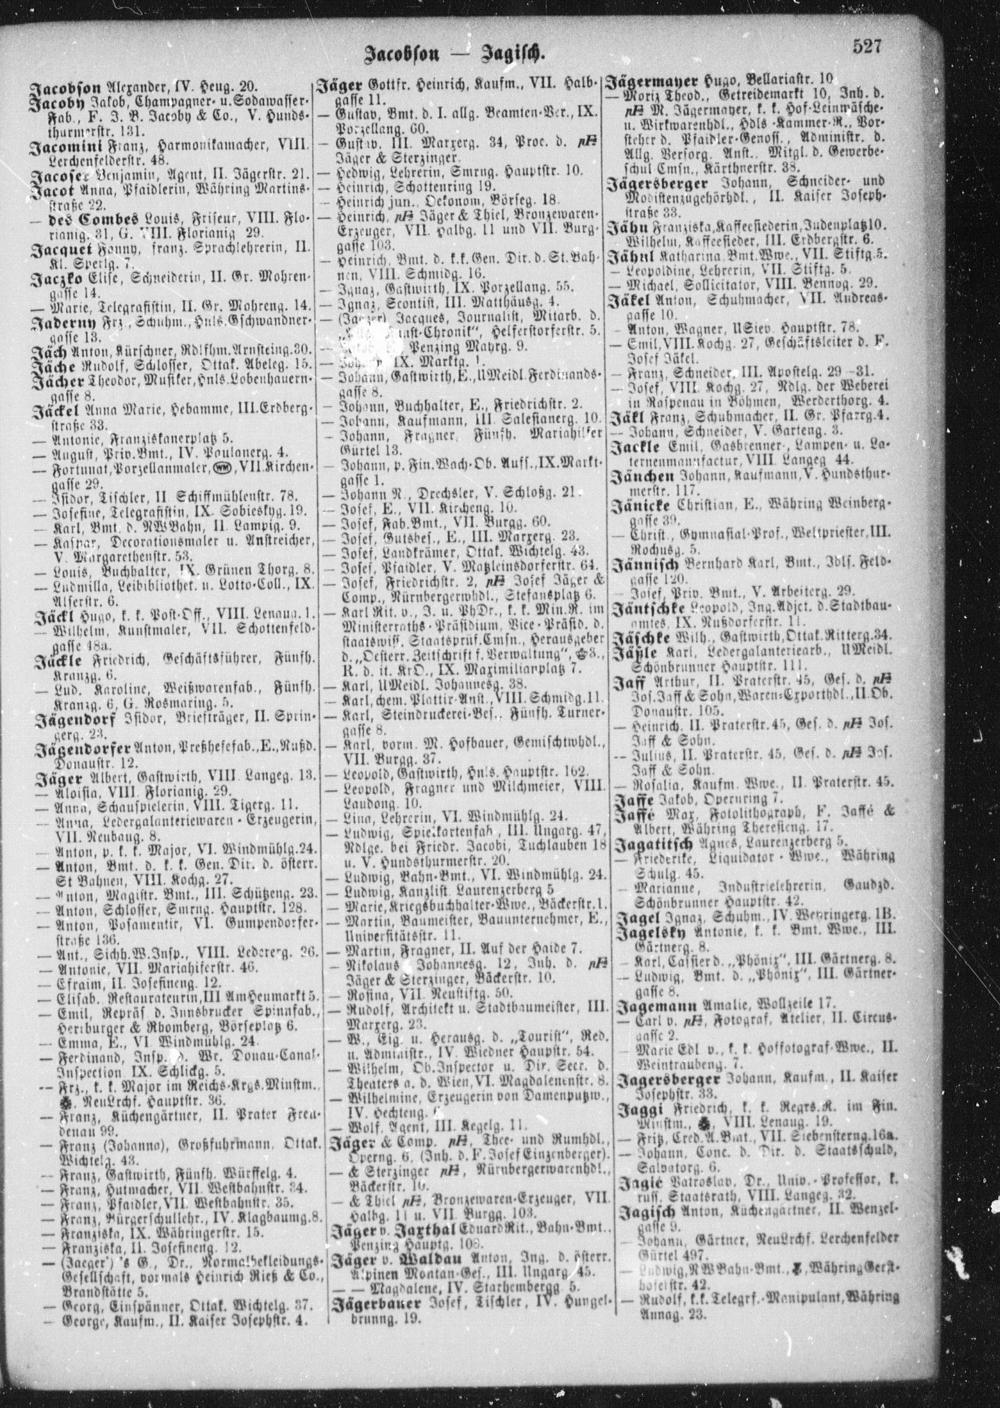 Jacobson — Jagisch.
527
Jacobson Alexander, IV. Heug. 20.
Jacoby Jakob, Champagner- u. Sodawasser-
Fab., F. J. B. Jacoby & Co., V. Hunds-
thurmerstr. 131.
Jacomini Franz, Harmonikamacher, VIII.
Lerchenfelderstr. 48.
Jacoser Benjamin, Agent, II. Jägerstr. 21.
Jacot Anna, Pfaidlerin, Währing Martins-
straße 22.
— des Combes Louis, Friseur, VIII. Flo-
rianig. 31, G. VIII. Florianig 29.
Jacquet Fanny, franz. Sprachlehrerin, II.
Kl. Sperlg. 7.
Jaczko Elise, Schneiderin, II. Gr. Mohren-
gasse 14.
— Marie, Telegrafistin, II. Gr. Mohreng. 14.
Jaderny Frz., Schuhm., Hnls. Gschwandner-
gasse 13.
Jäch Anton, Kürschner, Rdlfhm. Arnsteing. 30.
Jäche Rudolf, Schlosser, Ottak. Abeleg. 15.
Jächer Theodor, Musiker, Hnls. Lobenhauern-
gasse 8.
Jäckel Anna Marie, Hebamme, III. Erdberg-
straße 33.
— Antonie, Franziskanerplatz 5.
— August, Priv. Bmt., IV. Paulanerg. 4.
— Fortunat, Porzellanmaler, VII. Kirchen-
gasse 29.
— Isidor, Tischler, II. Schiffmühlenstr. 78.
— Josefine, Telegrafistin, IX. Sobieskyg. 19.
— Karl, Bmt. d. NWBahn, II. Lampig. 9.
— Kaspar, Decorationsmaler u. Anstreicher,
V. Margarethenstr. 53.
— Louis, Buchhalter, IX. Grünen Thorg. 8.
— Ludmilla, Leihbibliothek u. Lotto-Coll., IX.
Alserstr. 6.
Jäckl Hugo, k. k. Post-Off., VIII. Lenaug. 1.
— Wilhelm, Kunstmaler, VII. Schottenfeld-
gasse 48a.
Jäckle Friedrich, Geschäftsführer, Fünfh.
Kranzg. 6.
— Lud. Karoline, Weißwarenfab., Fünfh.
Kranzg. 6, G. Rosmaring. 5.
Jägendorf Isidor, Briefträger, II. Sprin-
gerg. 23.
Jägendorfer Anton, Preßhefefab., E., Nußd.
Donaustr. 12.
Jäger Albert, Gastwirth, VIII. Langeg. 13.
— Aloisia, VIII. Florianig. 29.
— Anna, Schauspielerin, VIII. Tigerg. 11.
— Anna, Ledergalanteriewaren-Erzeugerin,
VII. Neubaug. 8.
— Anton, p. k. k. Major, VI. Windmühlg. 24.
— Anton, Bmt. d. k. k. Gen. Dir. d. österr.
St Bahnen, VIII. Kochg. 27.
— Anton, Magistr. Bmt., III. Schützeng. 23.
— Anton, Schlosser, Smrng. Hauptstr. 128.
— Anton, Posamentir, VI. Gumpendorfer-
straße 136.
— Ant., Sichh. W. Insp., VIII. Ledererg. 26.
— Antonie, VII. Mariahilferstr. 46.
— Efraim, II. Josefineng. 12.
— Elisab. Restaurateurin, III Am Heumarkt 5.
— Emil, Repräs. d. Innsbrucker Spinnfab.,
Herrburger & Rhomberg, Börseplatz 6.
— Emma, E., VI. Windmühlg. 24.
— Ferdinand, Insp. d. Wr. Donau-Canal-
Inspection IX. Schlickg. 5.
— Frz., k. k. Major im Reichs-Krgs. Minstm.,
NeuLrchf. Hauptstr. 36.
— Franz, Küchengärtner, II. Prater Freu-
denau 99.
— Franz (Johanna), Großfuhrmann, Ottak.
Wichtelg. 43.
— Franz, Gastwirth, Fünfh. Würffelg. 4.
— Franz, Hutmacher, VII. Westbahnstr. 34.
— Franz, Pfaidler, VII. Westbahnstr. 35.
— Franz, Bürgerschullehr., IV. Klagbaumg. 8.
— Franziska, IX. Währingerstr. 15.
— Franziska, II. Josefineng. 12.
— (Jaeger) 's G., Dr., Normalbekleidungs-
Gesellschaft, vormals Heinrich Rieß & Co.,
Brandstätte 5.
— Georg, Einspänner, Ottak. Wichtelg. 37.
— George, Kaufm., II. Kaiser Josephstr. 4.
Jäger Gottfr. Heinrich, Kaufm., VII. Halb-
gasse 11.
— Gustav, Bmt. d. I. allg. Beamten-Ver., IX.
Porzellang. 60.
— Gustav, III. Marxerg. 34, Proc. d.
Jäger & Sterzinger.
— Hedwig, Lehrerin, Smrng. Hauptstr. 10.
— Heinrich, Schottenring 19.
— Heinrich jun., Oekonom, Börseg. 18.
— Heinrich, Jäger & Thiel, Bronzewaren-
Erzeuger, VII. Halbg. 11 und VII. Burg-
gasse 103.
— Heinrich, Bmt. d. k.k. Gen. Dir. d. St. Bah-
nen, VIII. Schmidg. 16.
— Ignaz, Gastwirth, IX. Porzellang. 55.
— Ignaz, Scontist, III. Matthäusg. 4.
— (Jaeger) Jacques, Journalist, Mitarb. d.
„ Kunst-Chronik", Helferstorferstr. 5.
— Penzing Mayrg. 9.
— Joh. IX. Marktg. .
— Johann, Gastwirth, E., UMeidl. Ferdinands-
gasse 8.
— Johann, Buchhalter, E., Friedrichstr. 2.
— Johann, Kaufmann, III. Salesianerg. 10.
— Johann, Fragner Fünfh. Mariahilfer
Gürtel 13.
— Johann, p. Fin. Wach-Ob. Auff., IX. Markt-
gasse 1.
— Johann N., Drechsler, V. Schloßg. 21.
— Josef, E., VII. Kircheng. 10.
— Josef, Fab. Bmt., VII. Burgg. 60.
— Josef, Gutsbes., E., III. Marxerg. 23.
— Josef, Landkrämer, Ottak. Wichtelg. 43.
— Josef, Pfaidler, V. Matzleinsdorferstr. 64.
— Josef, Friedrichstr. 2, Josef Jäger &
Comp., Nürnbergerwhdl., Stefansplatz 6.
— Karl Rit. v., J. u. PhDr., k. k. Min. R. im
Ministerraths-Präsidium, Vice-Präsid. d.
staatswiss. Staatsprüf. Cmsn., Herausgeber
d. „Oesterr. Zeitschrift f. Verwaltung", 3.,
R. d. it. KrO., IX. Maximilianplatz 7.
— Karl, UMeidl. Johannesg. 38.
— Karl, chem. Plattir-Anst., VIII. Schmidg. 11.
— Karl, Steindruckerei-Bes., Fünfh. Turner-
gasse 8.
— Karl, vorm. M. Hofbauer, Gemischtwhdl.,
VII. Burgg. 37.
— Leopold, Gastwirth, Hnls. Hauptstr. 162.
— Leopold, Fragner und Milchmeier, VIII.
Laudong. 10.
— Lina, Lehrerin, VI. Windmühlg. 24.
— Ludwig, Spielkartenfab., III. Ungarg. 47,
Ndlge. bei Friedr. Jacobi, Tuchlauben 18
u. V. Hundsthurmerstr. 20.
— Ludwig, Bahn-Bmt., VI. Windmühlg. 24.
— Ludwig, Kanzlist, Laurenzerberg 5
— Marie, Kriegsbuchhalter-Wwe., Bäckerstr. 1.
— Martin, Baumeister, Bauunternehmer, E.,
Universitätsstr. 11.
— Martin, Fragner, II. Auf der Haide 7.
— Nikolaus, Johannesg. 12, Inh. d.
Jäger & Sterzinger, Bäckerstr. 10.
— Rosina, VII. Neustiftg. 50.
— Rudolf, Architekt u. Stadtbaumeister, III.
Marxerg. 23.
— W., Eig. u. Herausg. d. „Tourist", Red.
u. Administr., IV. Wiedner Hauptstr. 54.
— Wilhelm, Ob. Inspector u. Dir. Secr. d.
Theaters a. d. Wien, VI. Magdalenenstr. 8.
— Wilhelmine, Erzeugerin von Damenputzw.,
IV. Hechteng.
— Wolf, Agent, III. Kegelg. 11.
Jäger & Comp. Thee- und Rumhdl.,
Operng. 6. (Inh. d. F. Josef Einzenberger).
— & Sterzinger Nürnbergerwarenhdl.,
Bäckerstr. 10.
— & Thiel Bronzewaren-Erzeuger, VII.
Halbg. 11 u. VII. Burgg. 103.
Jäger v. Jaxthal Eduard Rit., Bahn-Bmt..
Penzing Hauptg. 108.
Jäger v. Waldau Anton, Ing. d. österr.
Alpinen Montan-Ges., III. Ungarg. 45.
— — Magdalene, IV. Starhembergg. 5.
Jägerbauer Josef, Tischler, IV. Hungel-
brunng. 19.
Jägermayer Hugo, Bellariastr. 10
— Moriz Theod., Getreidemarkt 10, Inh. d.
M. Jägermayer, k. k. Hof-Leinwäsche-
u. Wirkwarenhdl., Hdls-Kammer-R., Vor-
steher d. Pfaidler-Genoss., Administr. d.
Allg. Versorg. Anst., Mitgl. d. Gewerbe-
schul Cmsn., Kärthnerstr. 38.
Jägersberger Johann, Schneider- und
Modistenzugehörhdl., II. Kaiser Joseph-
straße 33.
Jähn Franziska, Kaffeesiederin, Judenplatz 10.
— Wilhelm, Kaffeesieder, III. Erdbergstr. 6.
Jähnl Katharina, Bmt. Wwe., VII. Stiftg. 5.
— Leopoldine, Lehrerin, VII. Stiftg. 5.
— Michael, Sollicitator, VIII. Bennog. 29.
Jäkel Anton, Schuhmacher, VII. Andreas-
gasse 10.
— Anton, Wagner, USiev. Hauptstr. 78.
— Emil, VIII. Kochg. 27, Geschäftsleiter d. F.
Josef Jäkel.
— Franz, Schneider, III. Apostelg. 29—31.
— Josef, VIII. Kochg. 27, Ndlg. der Weberei
in Raspenau in Böhmen, Werderthorg. 4.
Jäkl Franz, Schuhmacher, II. Gr. Pfarrg. 4.
— Johann, Schneider, V. Garteng. 3.
Jackle Emil, Gasbrenner-, Lampen- u. La-
ternenmanufactur, VIII. Langeg 44.
Jänchen Johann, Kaufmann, V. Hundsthur-
merstr. 117.
Jänicke Christian, E., Währing Weinberg-
gasse 39.
— Christ., Gymnasial-Prof., Weltpriester, III.
Rochusg. 5.
Jännisch Bernhard Karl, Bmt., Jdls. Feld-
gasse 120.
— Josef, Priv. Bmt., V. Arbeiterg. 29.
Jäntschke Leopold, Ing. Adjct. d. Stadtbau-
amtes, IX. Nußdorferstr. 11.
Jäschke Wilh., Gastwirth, Ottak. Ritterg. 34.
Jäßle Karl, Ledergalanteriearb., UMeidl.
Schönbrunner Hauptstr. 111.
Jaff Arthur, II. Praterstr. 45, Ges. d.
Jos. Jaff & Sohn, Waren-Exporthdl., II. Ob.
Donaustr. 105.
— Heinrich, II. Praterstr. 45, Ges. d. Jos.
Jaff & Sohn.
— Julius, II. Praterstr. 45, Ges. d. Jos.
Jaff & Sohn.
— Rosalia, Kaufm. Wwe., II. Praterstr. 45.
Jaffe Jakob, Opernring 7.
Jaffé Max, Fotolithograph, F. Jaffé &
Albert, Währing Theresieng. 17.
Jagatitsch Agnes, Laurenzerberg 5.
— Friederike, Liquidator-Wwe., Währing
Schulg. 45.
— Marianne, Industrielehrerin, Gaudzd.
Schönbrunner Hauptstr. 42.
Jagel Ignaz, Schuhm., IV. Weyringerg. 1B.
Jagelsky Antonie, k. k. Bmt. Wwe., III.
Gärtnerg. 8.
— Karl, Cassier d. „Phönix", III. Gärtnerg. 8.
— Ludwig, Bmt. d. „Phönix", III. Gärtner-
gasse 8.
Jagemann Amalie, Wollzeile 17.
— Carl v. Fotograf, Atelier, II. Circus-
gasse 2.
— Marie Edl v., k. k. Hoffotograf-Wwe., II.
Weintraubeng. 7.
Jagersberger Johann, Kaufm., II. Kaiser
Josephstr. 33.
Jaggi Friedrich, k. k. Regrs. R. im Fin.
Minstm., VIII. Lenaug. 19.
— Fritz, Cred. A. Bmt., VII. Siebensterng. 16a.
— Johann, Conc. d. Dir. d. Staatsschuld,
Salvatorg. 6.
Jagić Vatroslav, Dr., Univ.-Professor, k.
russ. Staatsrath, VIII. Langeg. 32.
Jagisch Anton, Küchengärtner, II. Wenzel-
gasse 9.
— Johann, Gärtner, NeuLrchf. Lerchenfelder
Gürtel 497.
— Ludwig, NWBahn-Bmt., Währing Gerst-
hoferstr. 42.
— Rudolf, k.k. Telegrf.-Manipulant, Währing
Annag. 23.